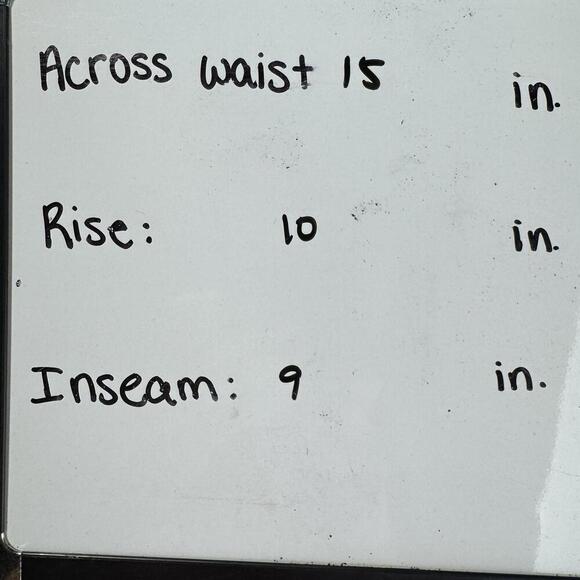 Across waist 15 in.
Rise: 10 in.
Inseam: 9 in.